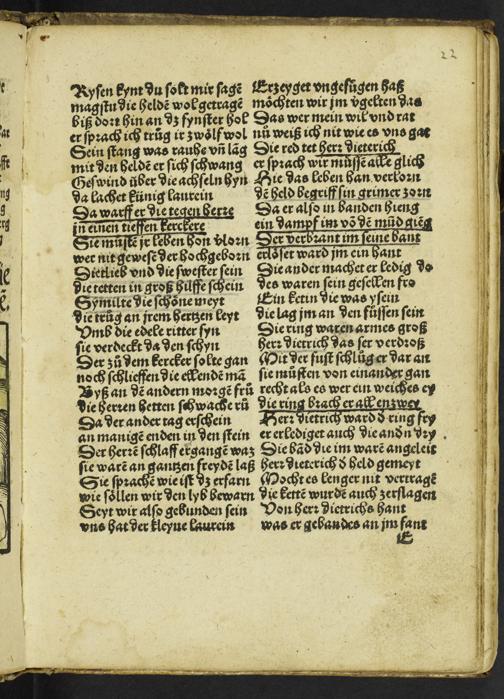 22
Rysen kynt du solt mir sagē
magstu die heldē wol getragē
biß dort hin an dz fynster hol
er sprach ich trüg ir zwölf wol
Sein stang was rauhe vñ lāg
mit den heldē er sich schwang
Geswind über die achseln hyn
da lachet künig laurein
Da warff er die tegen herre
in einen tieffen kerckere
Sie müstē jr leben hon vlorn
wer nit gewese der hochgeborn
Dietlieb vnd die swester sein
die tetten in groß hilffe schein
Symilte die schöne meyt
die trüg an jrem hertzen leyt
Vmb die edele ritter fyn
sie verdeckt da den schyn
Der zü dem kercker solte gan
noch schlieffen die ellendē mā
Byß an dē andern morgē frü
die herren hetten schwache rü
Da der ander tag erschein
an manigē enden in den stein
Der herrē schlaff ergangē waz
sie warē an gantzen freydē laß
Sie sprachē wie ist dz erfarn
wie söllen wir den lyb bewarn
Seyt wir also gebunden sein
vns hat der kleyne laurein
Erzeyget vngefügen haß
möchten wir jm vgelten das
Das wer mein wil vnd rat
nü weiß ich nit wie es vns gat
Die red tet herr dieterich
er sprach wir müssē alle glich
Hie das leben han verlorn
dē held begriff sin grimer zorn
Da er also in banden hieng
ein dampf im vō dē müd gieg
Der verbrant im seine bant
erlöser ward jm ein hant
Die ander machet er ledig do
des waren sein gesellen fro
Ein ketin die was ysein
die lag jm an den füssen sein
Die ring waren armes groß
herr dietrich das ser verdroß
Mit der fust schlüg er dar an
sie müsten von einander gan
recht als es wer ein weiches ey
die ring brach er all enzwey
Herr dietrich ward d ring fry
er erlediget auch die andn dry
Die bād die im warē angeleit
herr dieterich d held gemeyt
Mocht es lenger nit vertragē
die kettē wurdē auch zerslagen
Von herr dietrichs hant
was er gebandes an jm fant
E